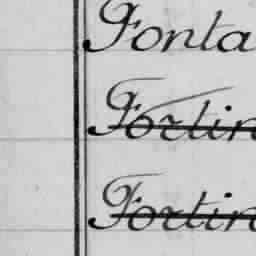 Fonta
Fortin
Fortin